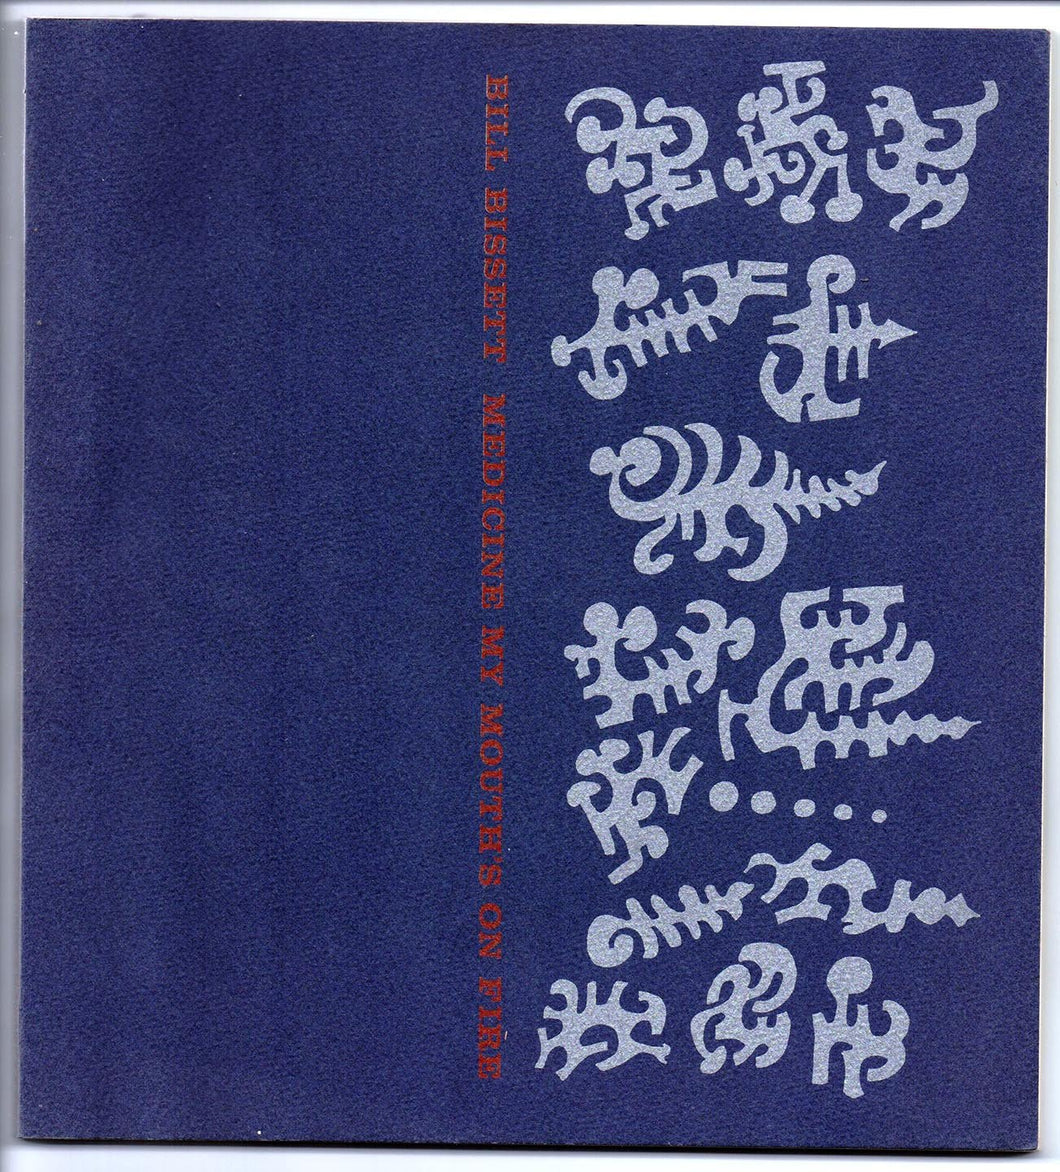 BILL BISSETT MEDICINE MY MOUTH'S ON FIRE